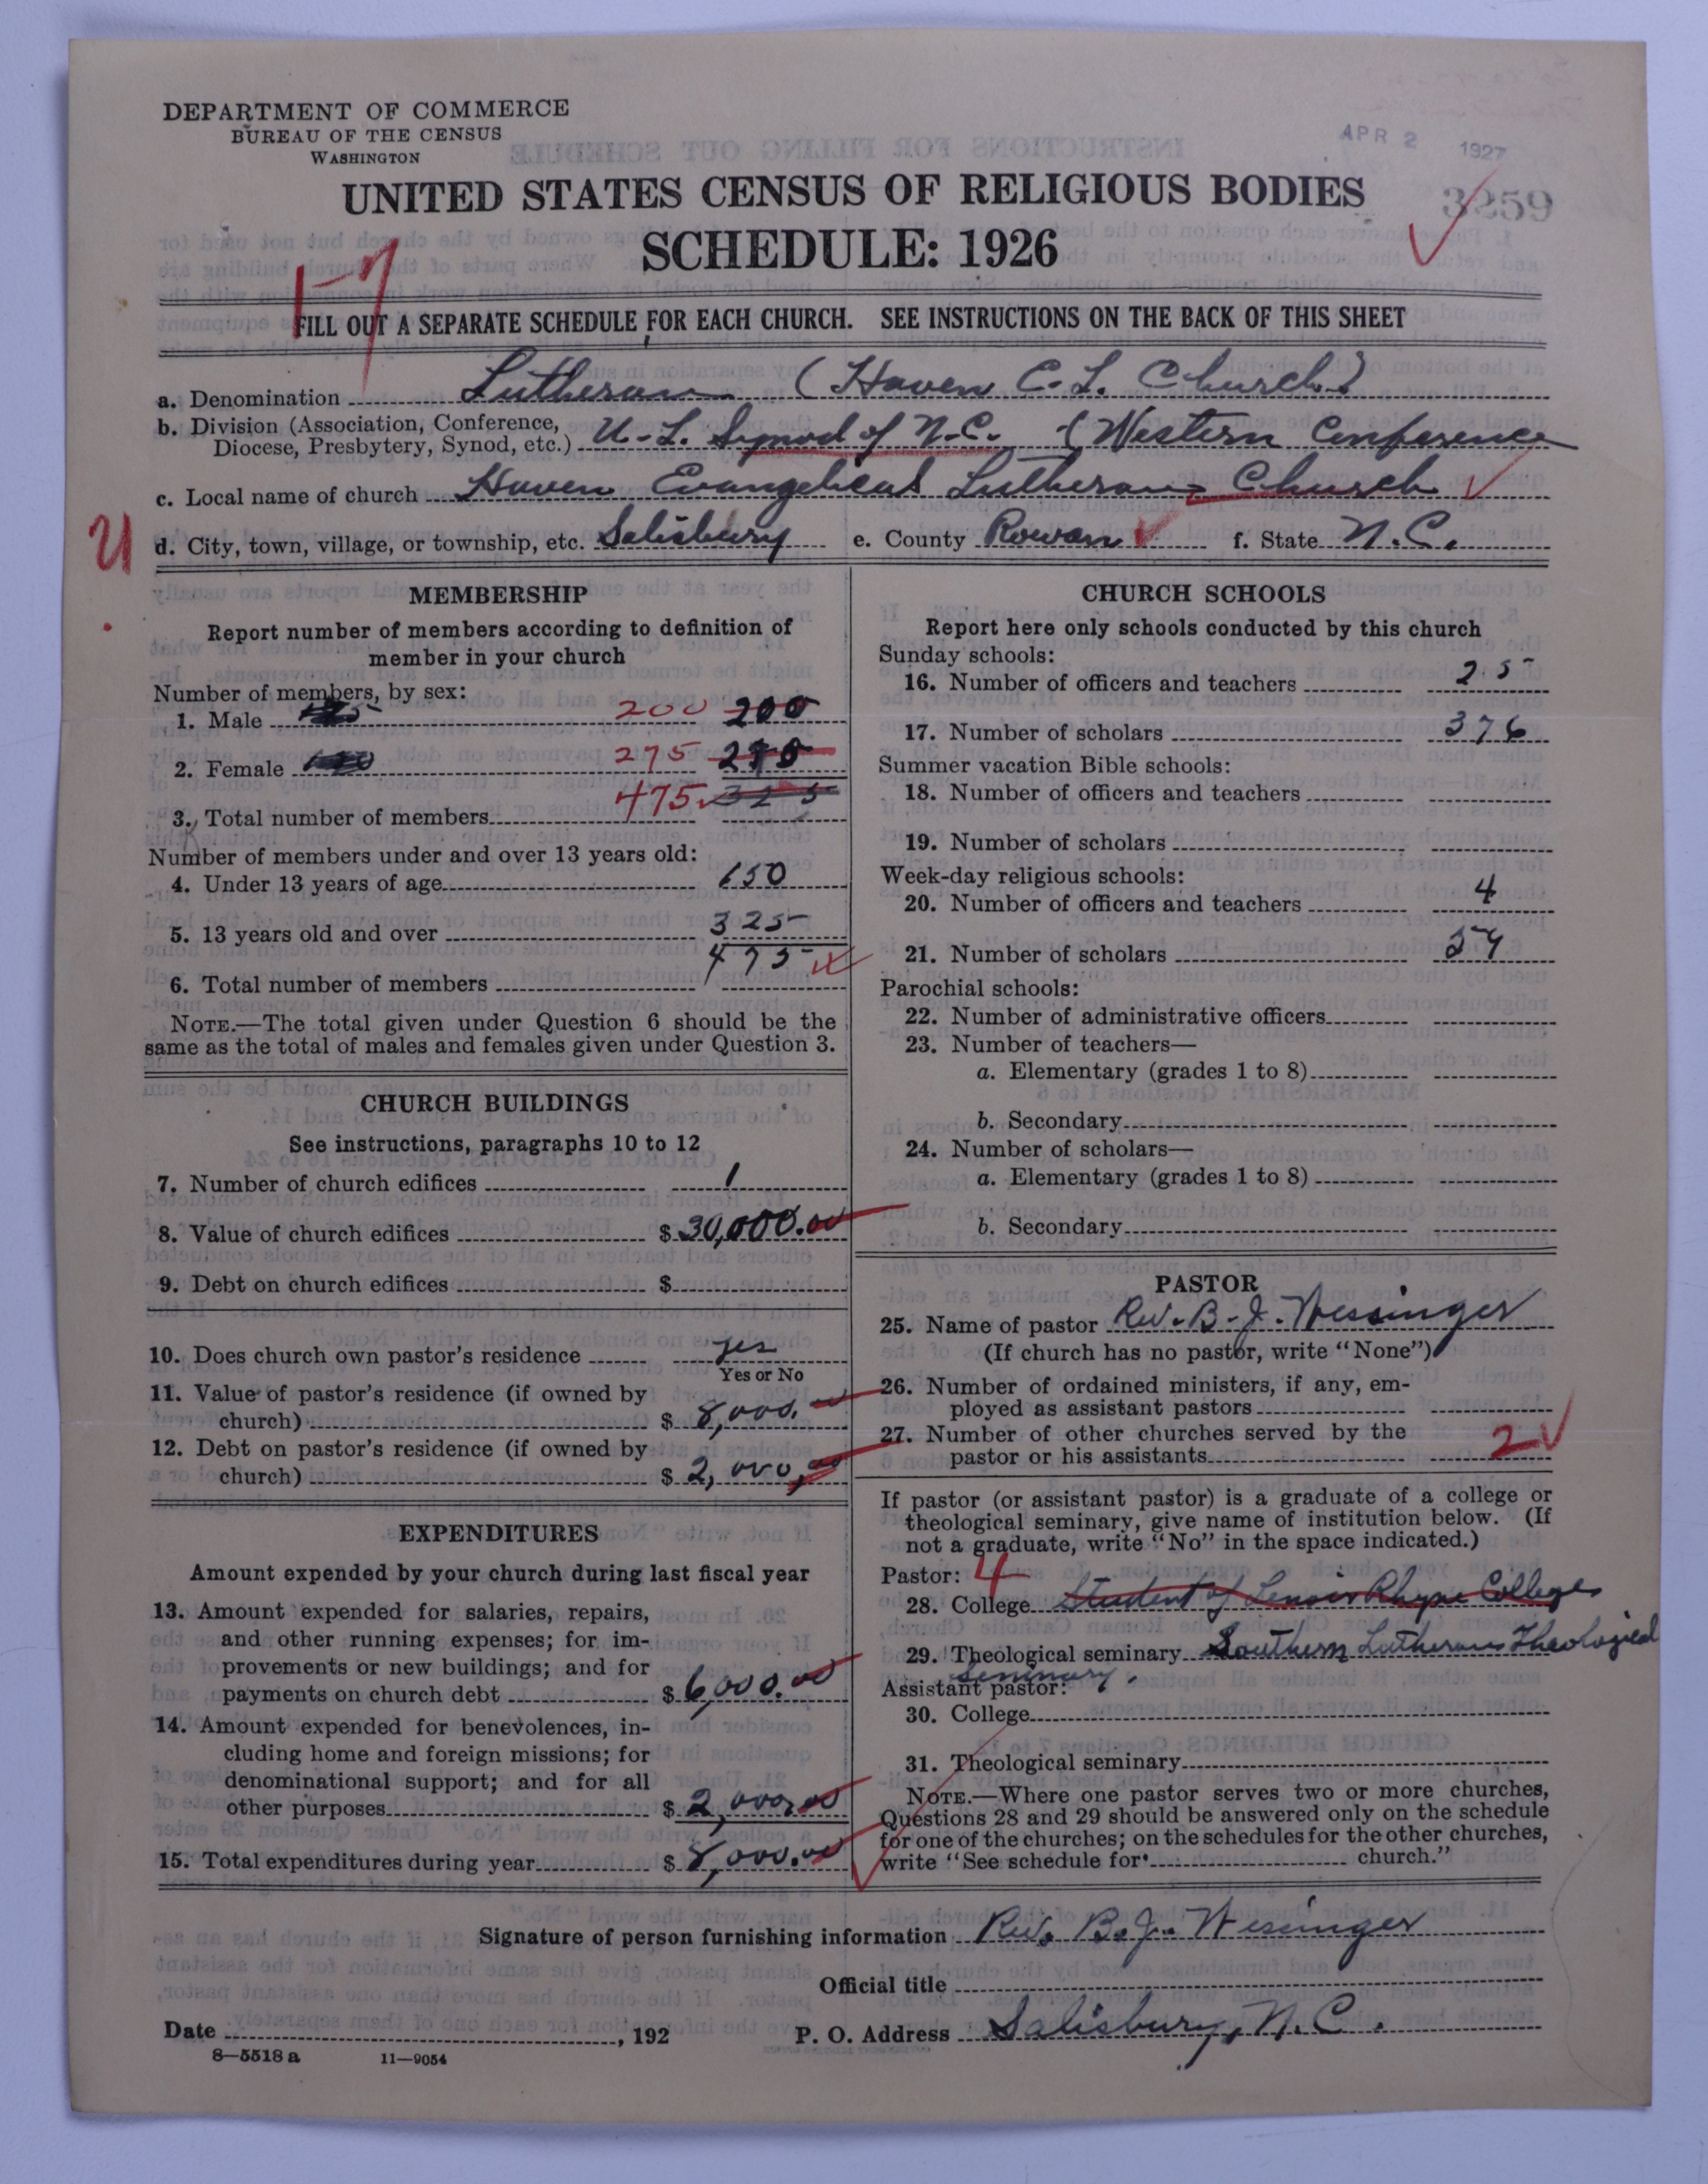 DEPARTMENT OF COMMERCE
BUREAU OF THE CENSUS
WASHINGTON
APR 2 1927
UNITED STATES CENSUS OF RELIGIOUS BODIES
3259
SCHEDULE: 1926
1-7
FILL OUT A SEPARATE SCHEDULE FOR EACH CHURCH. SEE INSTRUCTIONS ON THE BACK OF THIS SHEET
a. Denomination Lutheran (Haven E. L. Church)
b. Division (Association, Conference,
Diocese, Presbytery, Synod, etc.) U. L. Synod of N.C. (Western Conference
c. Local name of church Haven Evangelical Lutheran Church
U
d. City, town, village, or township, etc. Salisbury e. County Rowan f. State N.C.
MEMBERSHIP
Report number of members according to definition of
member in your church
Number of members, by sex:
1. Male 200 200
2. Female 275
3. Total number of members 475 325
Number of members under and over 13 years old:
4. Under 13 years of age 150
5. 13 years old and over 325
6. Total number of members 475
NOTE.—The total given under Question 6 should be the
same as the total of males and females given under Question 3.
CHURCH BUILDINGS
See instructions, paragraphs 10 to 12
7. Number of church edifices 1
8. Value of church edifices $ 30,000.00
9. Debt on church edifices $
10. Does church own pastor's residence yes
Yes or No
11. Value of pastor's residence (if owned by
church) $ 8,000.
12. Debt on pastor's residence (if owned by
church) $ 2,000,00
EXPENDITURES
Amount expended by your church during last fiscal year
13. Amount expended for salaries, repairs,
and other running expenses; for im-
provements or new buildings; and for
payments on church debt $ 6,000.00
14. Amount expended for benevolences, in-
cluding home and foreign missions; for
denominational support; and for all
other purposes $ 2,000,00
15. Total expenditures during year $ 8,000.00
CHURCH SCHOOLS
Report here only schools conducted by this church
Sunday schools:
16. Number of officers and teachers 25
17. Number of scholars 376
Summer vacation Bible schools:
18. Number of officers and teachers
19. Number of scholars
Week-day religious schools:
20. Number of officers and teachers 4
21. Number of scholars 54
Parochial schools:
22. Number of administrative officers
23. Number of teachers—
a. Elementary (grades 1 to 8)
b. Secondary
24. Number of scholars—
a. Elementary (grades 1 to 8)
b. Secondary
PASTOR
25. Name of pastor Rev. B. J. Wessinger
(If church has no pastor, write "None")
26. Number of ordained ministers, if any, em-
ployed as assistant pastors
27. Number of other churches served by the
pastor or his assistants 2
If pastor (or assistant pastor) is a graduate of a college or
theological seminary, give name of institution below. (If
not a graduate, write "No" in the space indicated.)
Pastor: 4
28. College Student of Lenoir Rhyne College
29. Theological seminary Southern Lutheran Theological
Seminary.
Assistant pastor:
30. College
31. Theological seminary
NOTE.—Where one pastor serves two or more churches,
Questions 28 and 29 should be answered only on the schedule
for one of the churches; on the schedules for the other churches,
write "See schedule for church."
Signature of person furnishing information Rev. B. J. Wessinger
Official title
Date , 192 P. O. Address Salisbury, N.C.
8—5518 a 11—9054